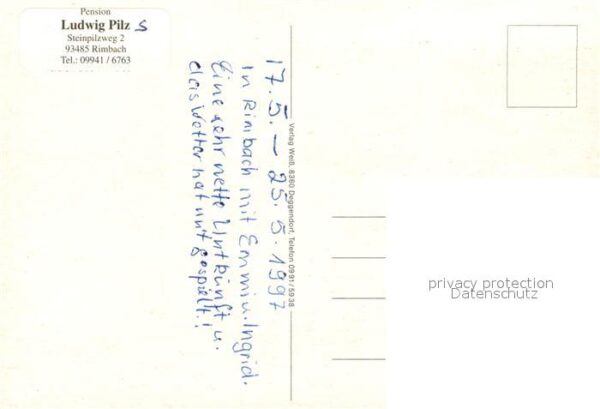 Pension
Ludwig Pilz S
Steinpilzweg 2
93485 Rimbach
Tel.: 09941 / 6763
17. 5. – 25. 5. 1997
in Rimbach mit Emmi u. Ingrid.
Eine sehr nette Untkünft u.
das Wetter hat mit gespielt.!
Verlag Weiß, 8360 Deggendorf, Telefon 0991/5938
privacy protection
Datenschutz